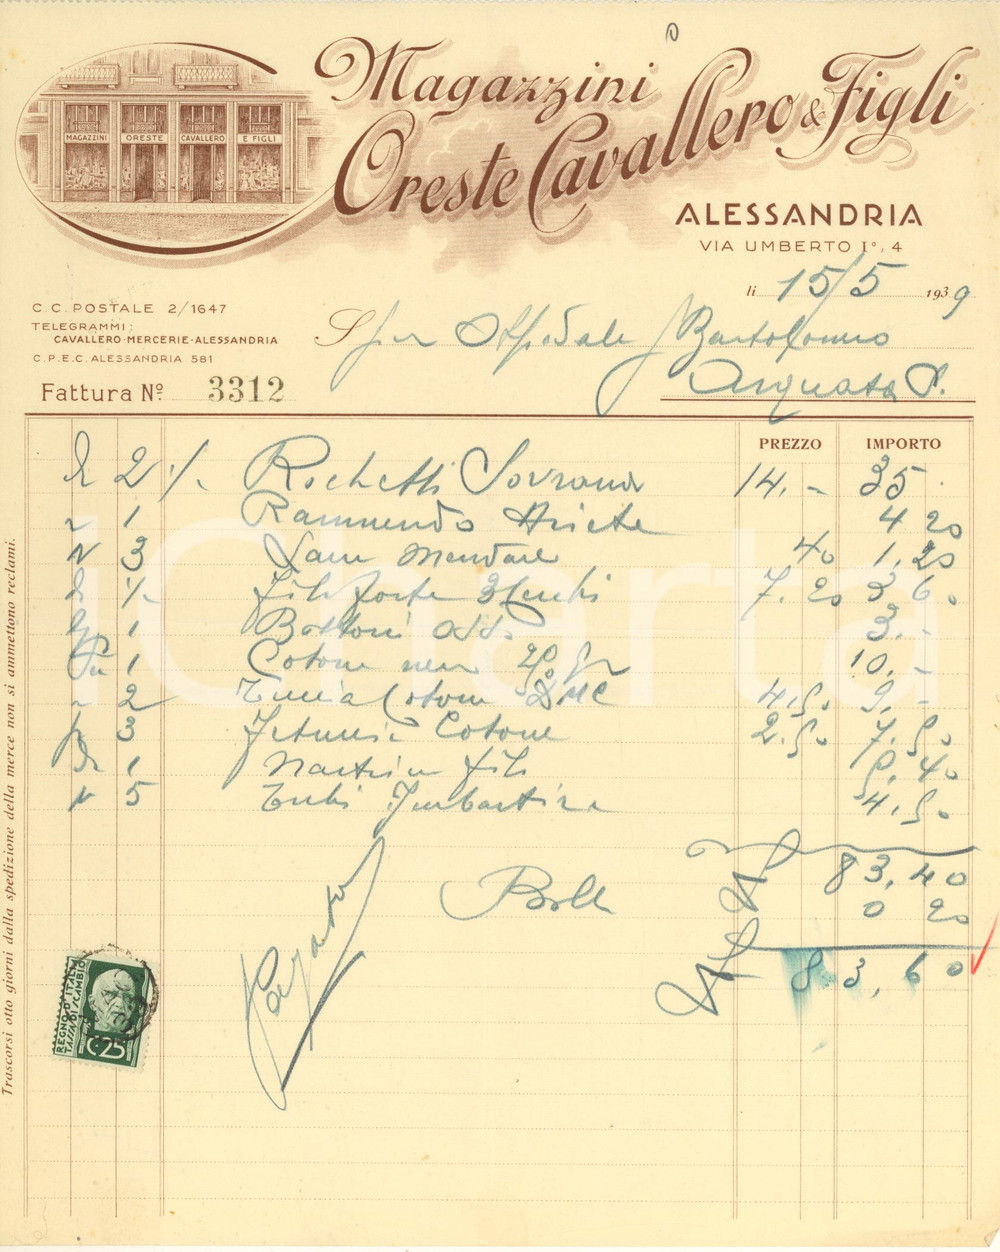 Magazzini
Oreste Cavallero & Figli
MAGAZZINI ORESTE CAVALLERO E FIGLI
ALESSANDRIA
VIA UMBERTO Iº, 4
li 15/5 1939
C.C. POSTALE 2/1647
TELEGRAMMI:
CAVALLERO-MERCERIE-ALESSANDRIA
C.P.E.C. ALESSANDRIA 581
Ospedale S Bartolomeo
Arquata S.
Fattura Nº 3312
PREZZO IMPORTO
2 ½ Rochetti Sovrana 14.- 35.
1 Rammendo Ariete 4 20
N 3 Lane Mendare 40 1.20
½ Fil forte 3 Cerchi 7.20 3 60
1 Bottoni Osso 3.-
1 Cotone nero 10.-
2 Cotone DMC 4.50 9.-
3 Cotone 2.50 7.50
1 Nastrin Filo 5.40
5 Imbastire 4.50
83.40
Bolli 0 20
83,60
Pagato
REGNO D'ITALIA
TASSA DI SCAMBIO
C.25
Trascorsi otto giorni dalla spedizione della merce non si ammettono reclami.
iCharta